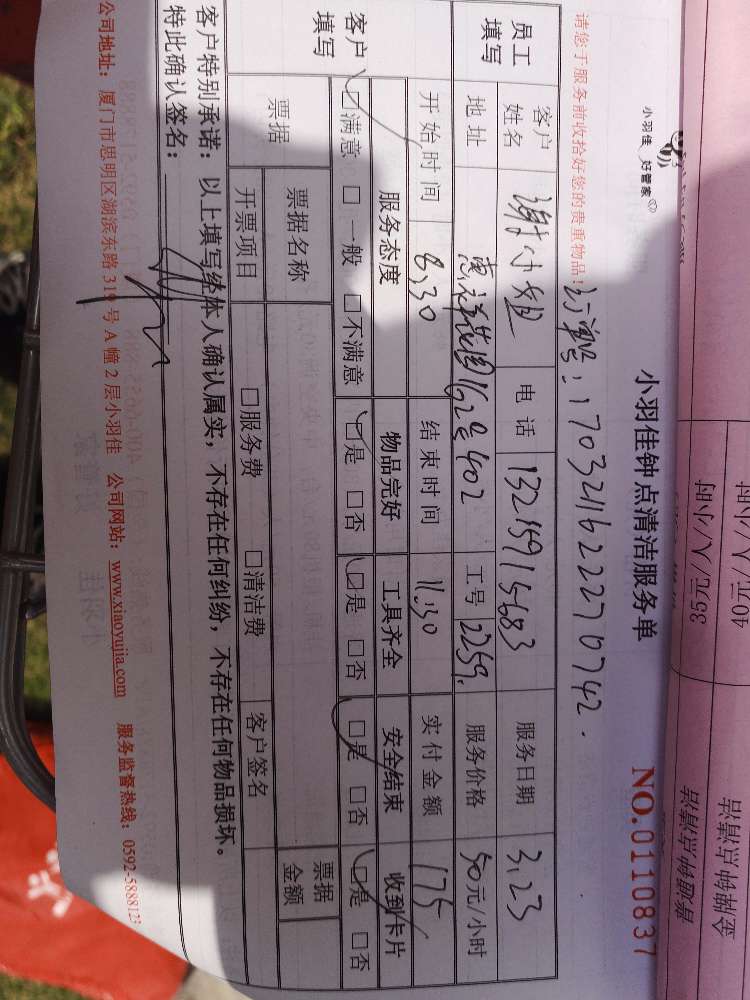 小羽佳 好管家
小羽佳钟点清洁服务单
NO.0110837
请您于服务前收拾好您的贵重物品!
1703211622270742.
员工填写
客户姓名 谢小姐 电话 13215915683 服务日期 3.23
地址 惠祥花园116号402 工号 2259. 服务价格 50元/小时
开始时间 8.30 结束时间 11.30 实付金额 175
客户填写
服务态度 物品完好 工具齐全 安全结束 收到卡片
☑满意 □一般 □不满意 ☑是 □否 ☑是 □否 ☑是 □否 ☑是 □否
票据 票据名称 票据金额
开票项目 □服务费 □清洁费 客户签名
客户特别承诺：以上填写经本人确认属实，不存在任何纠纷，不存在任何物品损坏。
特此确认签名：
公司地址：厦门市思明区湖滨东路319号A幢2层小羽佳 公司网站：www.xiaoyujia.com 服务监督热线：0592-5888123
40元/人/小时 金牌钟点清洁
35元/人/小时 普通钟点清洁